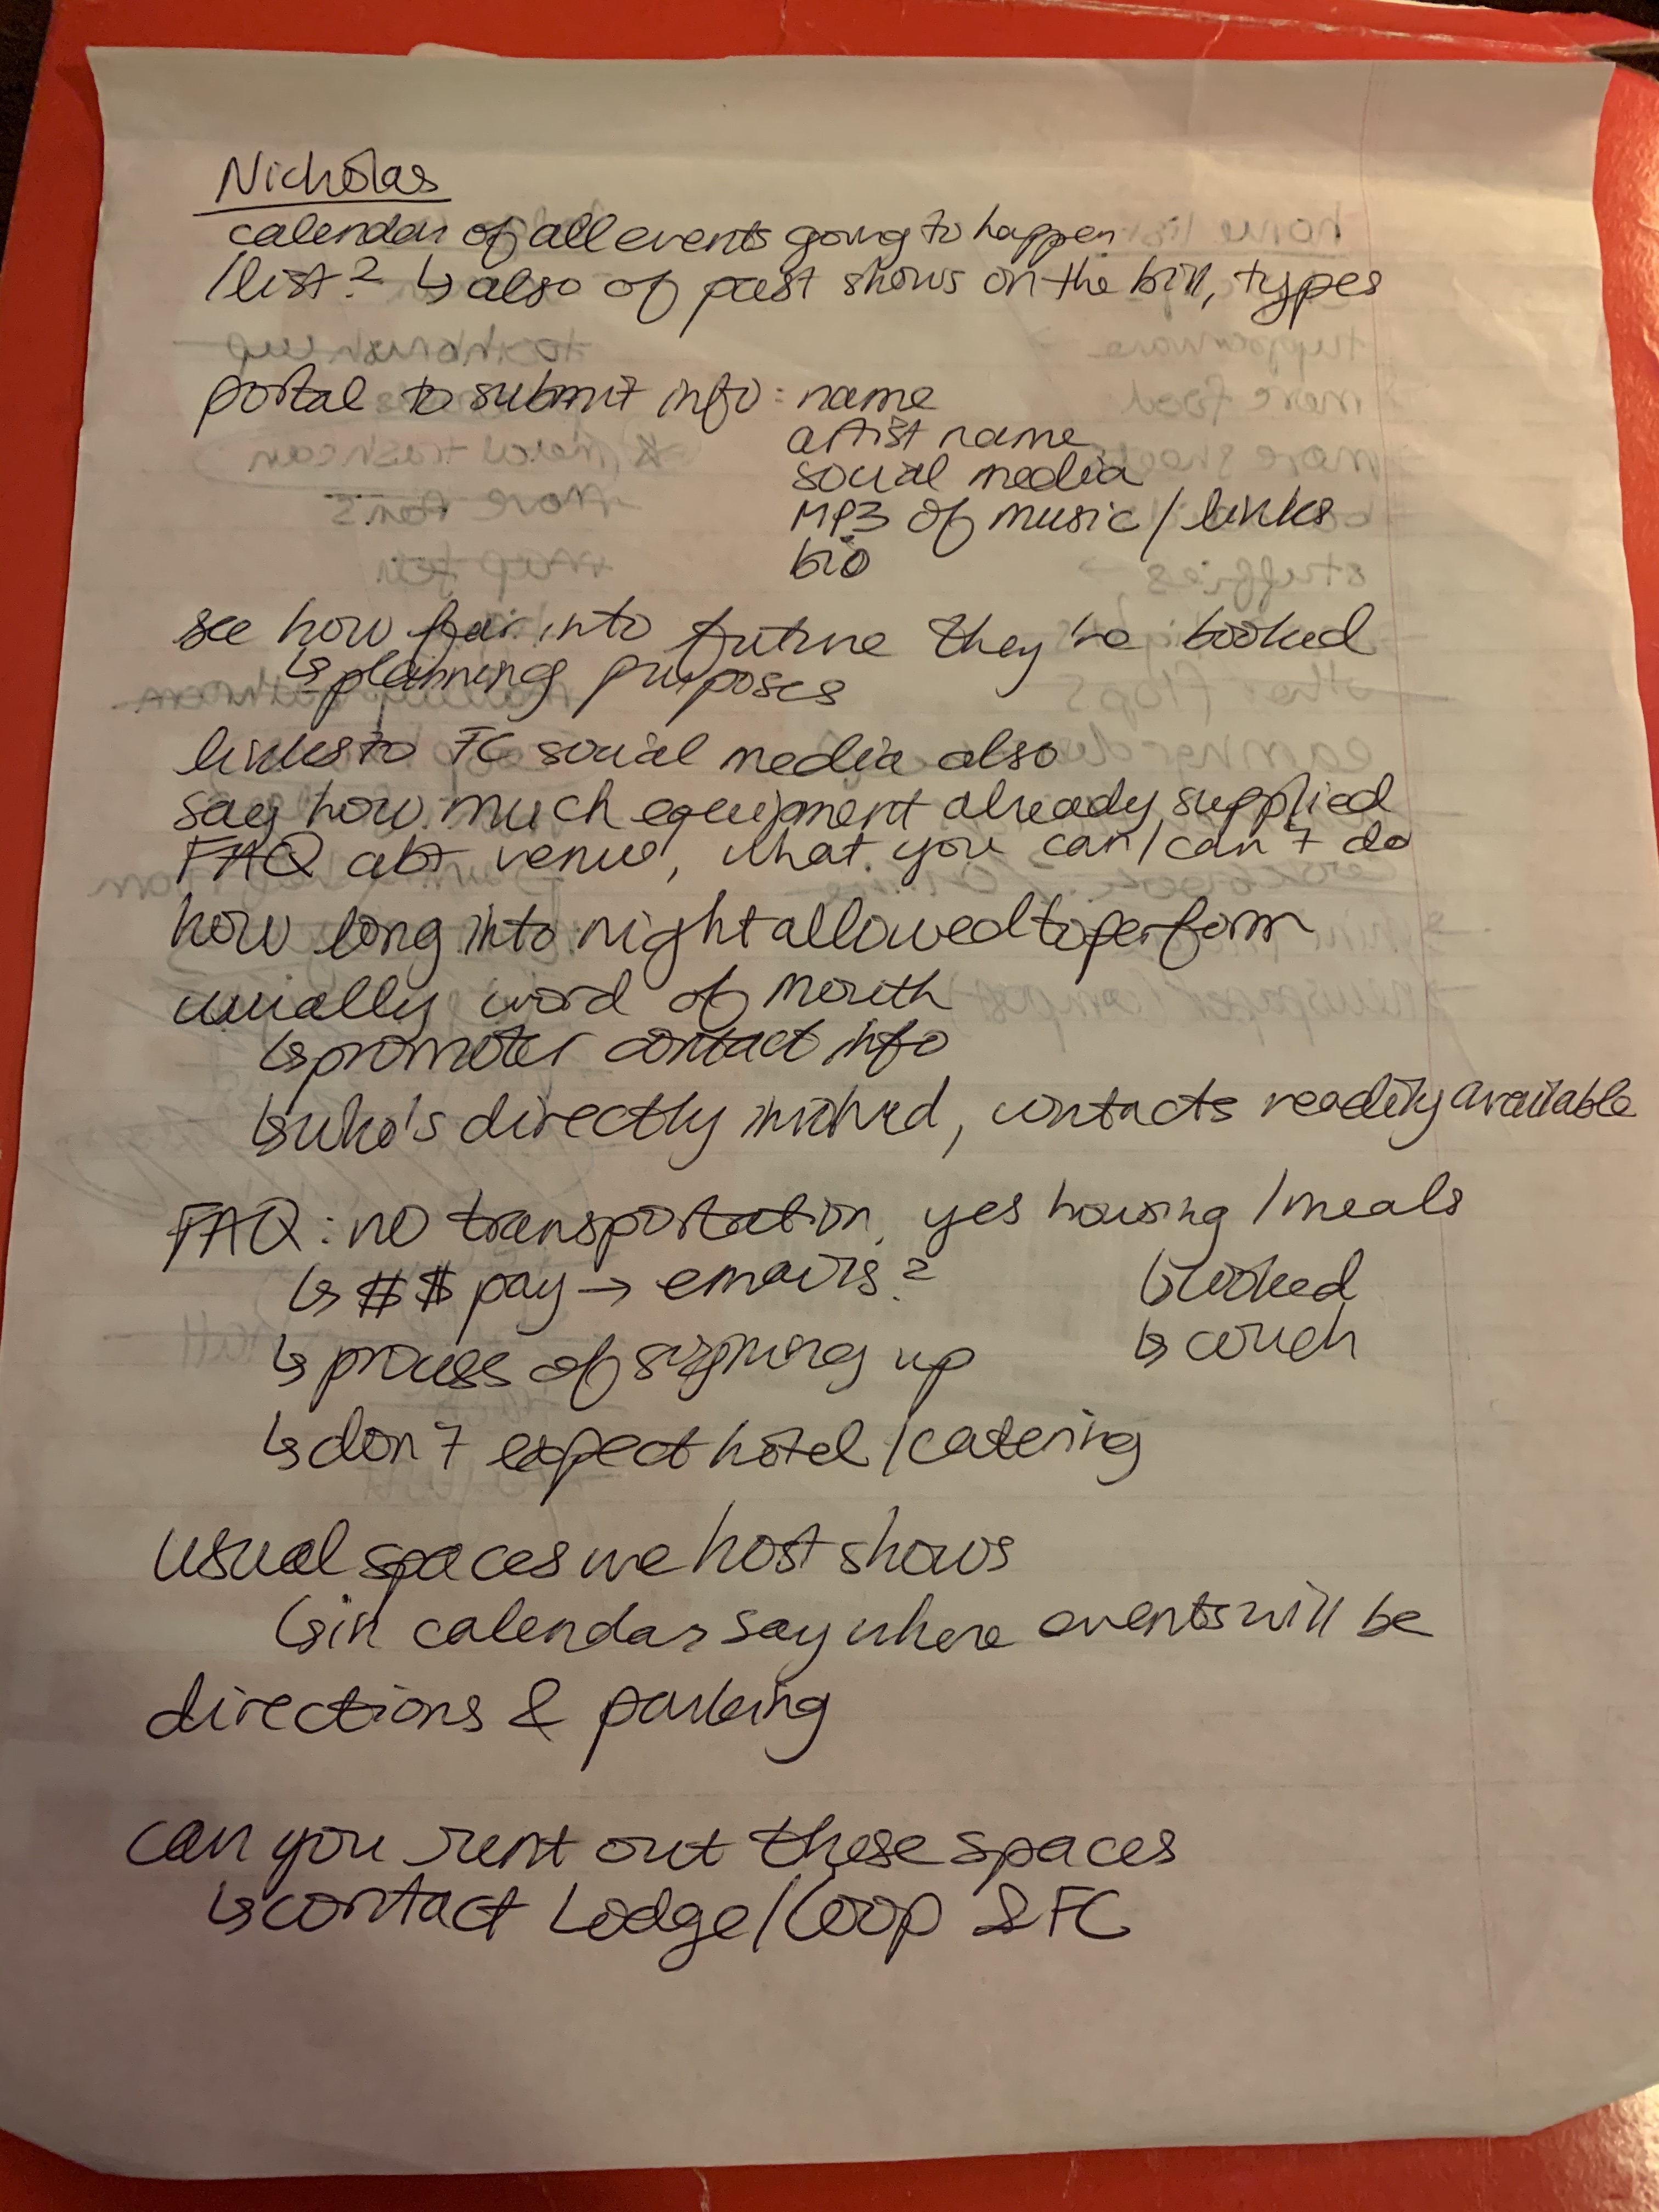 Nicholas
calendar of all events going to happen
/list? ↳ also of past shows on the bill, types
portal to submit info: name
artist name
social media
MP3 of music/links
bio
see how far into future they're booked
↳ planning purposes
links to FC social media also
say how much equipment already supplied
FAQ abt venue, what you can/can't do
how long into night allowed to perform
usually word of mouth
↳ promoter contact info
↳ who's directly involved, contacts readily available
FAQ: no transportation, yes housing/meals
↳ $$ pay → emails? ↳ booked
↳ process of signing up ↳ couch
↳ don't expect hotel/catering
usual spaces we host shows
↳ in calendar say where events will be
directions & parking
can you rent out these spaces
↳ contact Lodge/Coop & FC